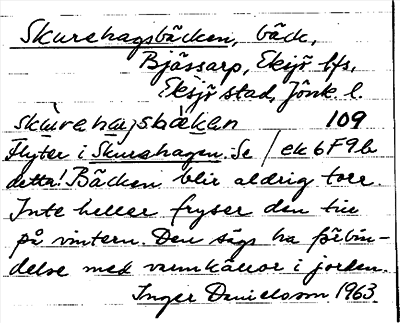 Skurehagsbäcken, bäck,
Bjässarp, Eksjö lfs,
Eksjö stad, Jönk. l.
skùrehajsbäkan 109
Flyter i Skurehagen. Se / ek 6F9b
detta! Bäcken blir aldrig torr.
Inte heller fryser den till
på vintern. Den sägs ha förbin-
delse med varmkällor i jorden.
Inger Danielsson 1963